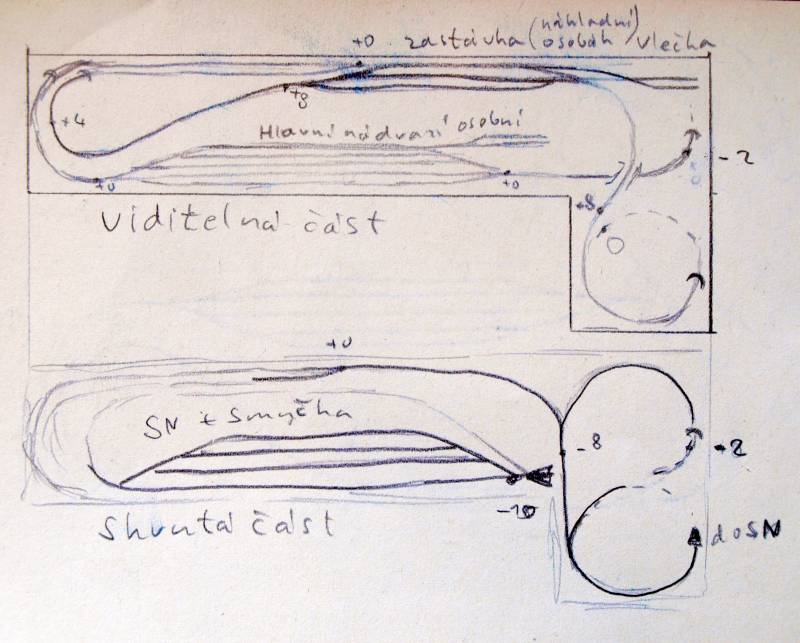 +0 zastávka (nákladní / osobáh) vlečka
+8
+4
Hlavní nádraží osobní
+0
+0
-2
-8
0
viditelná část
+0
SN + Smyčka
-8
-2
-10
Skrytá část
do SN